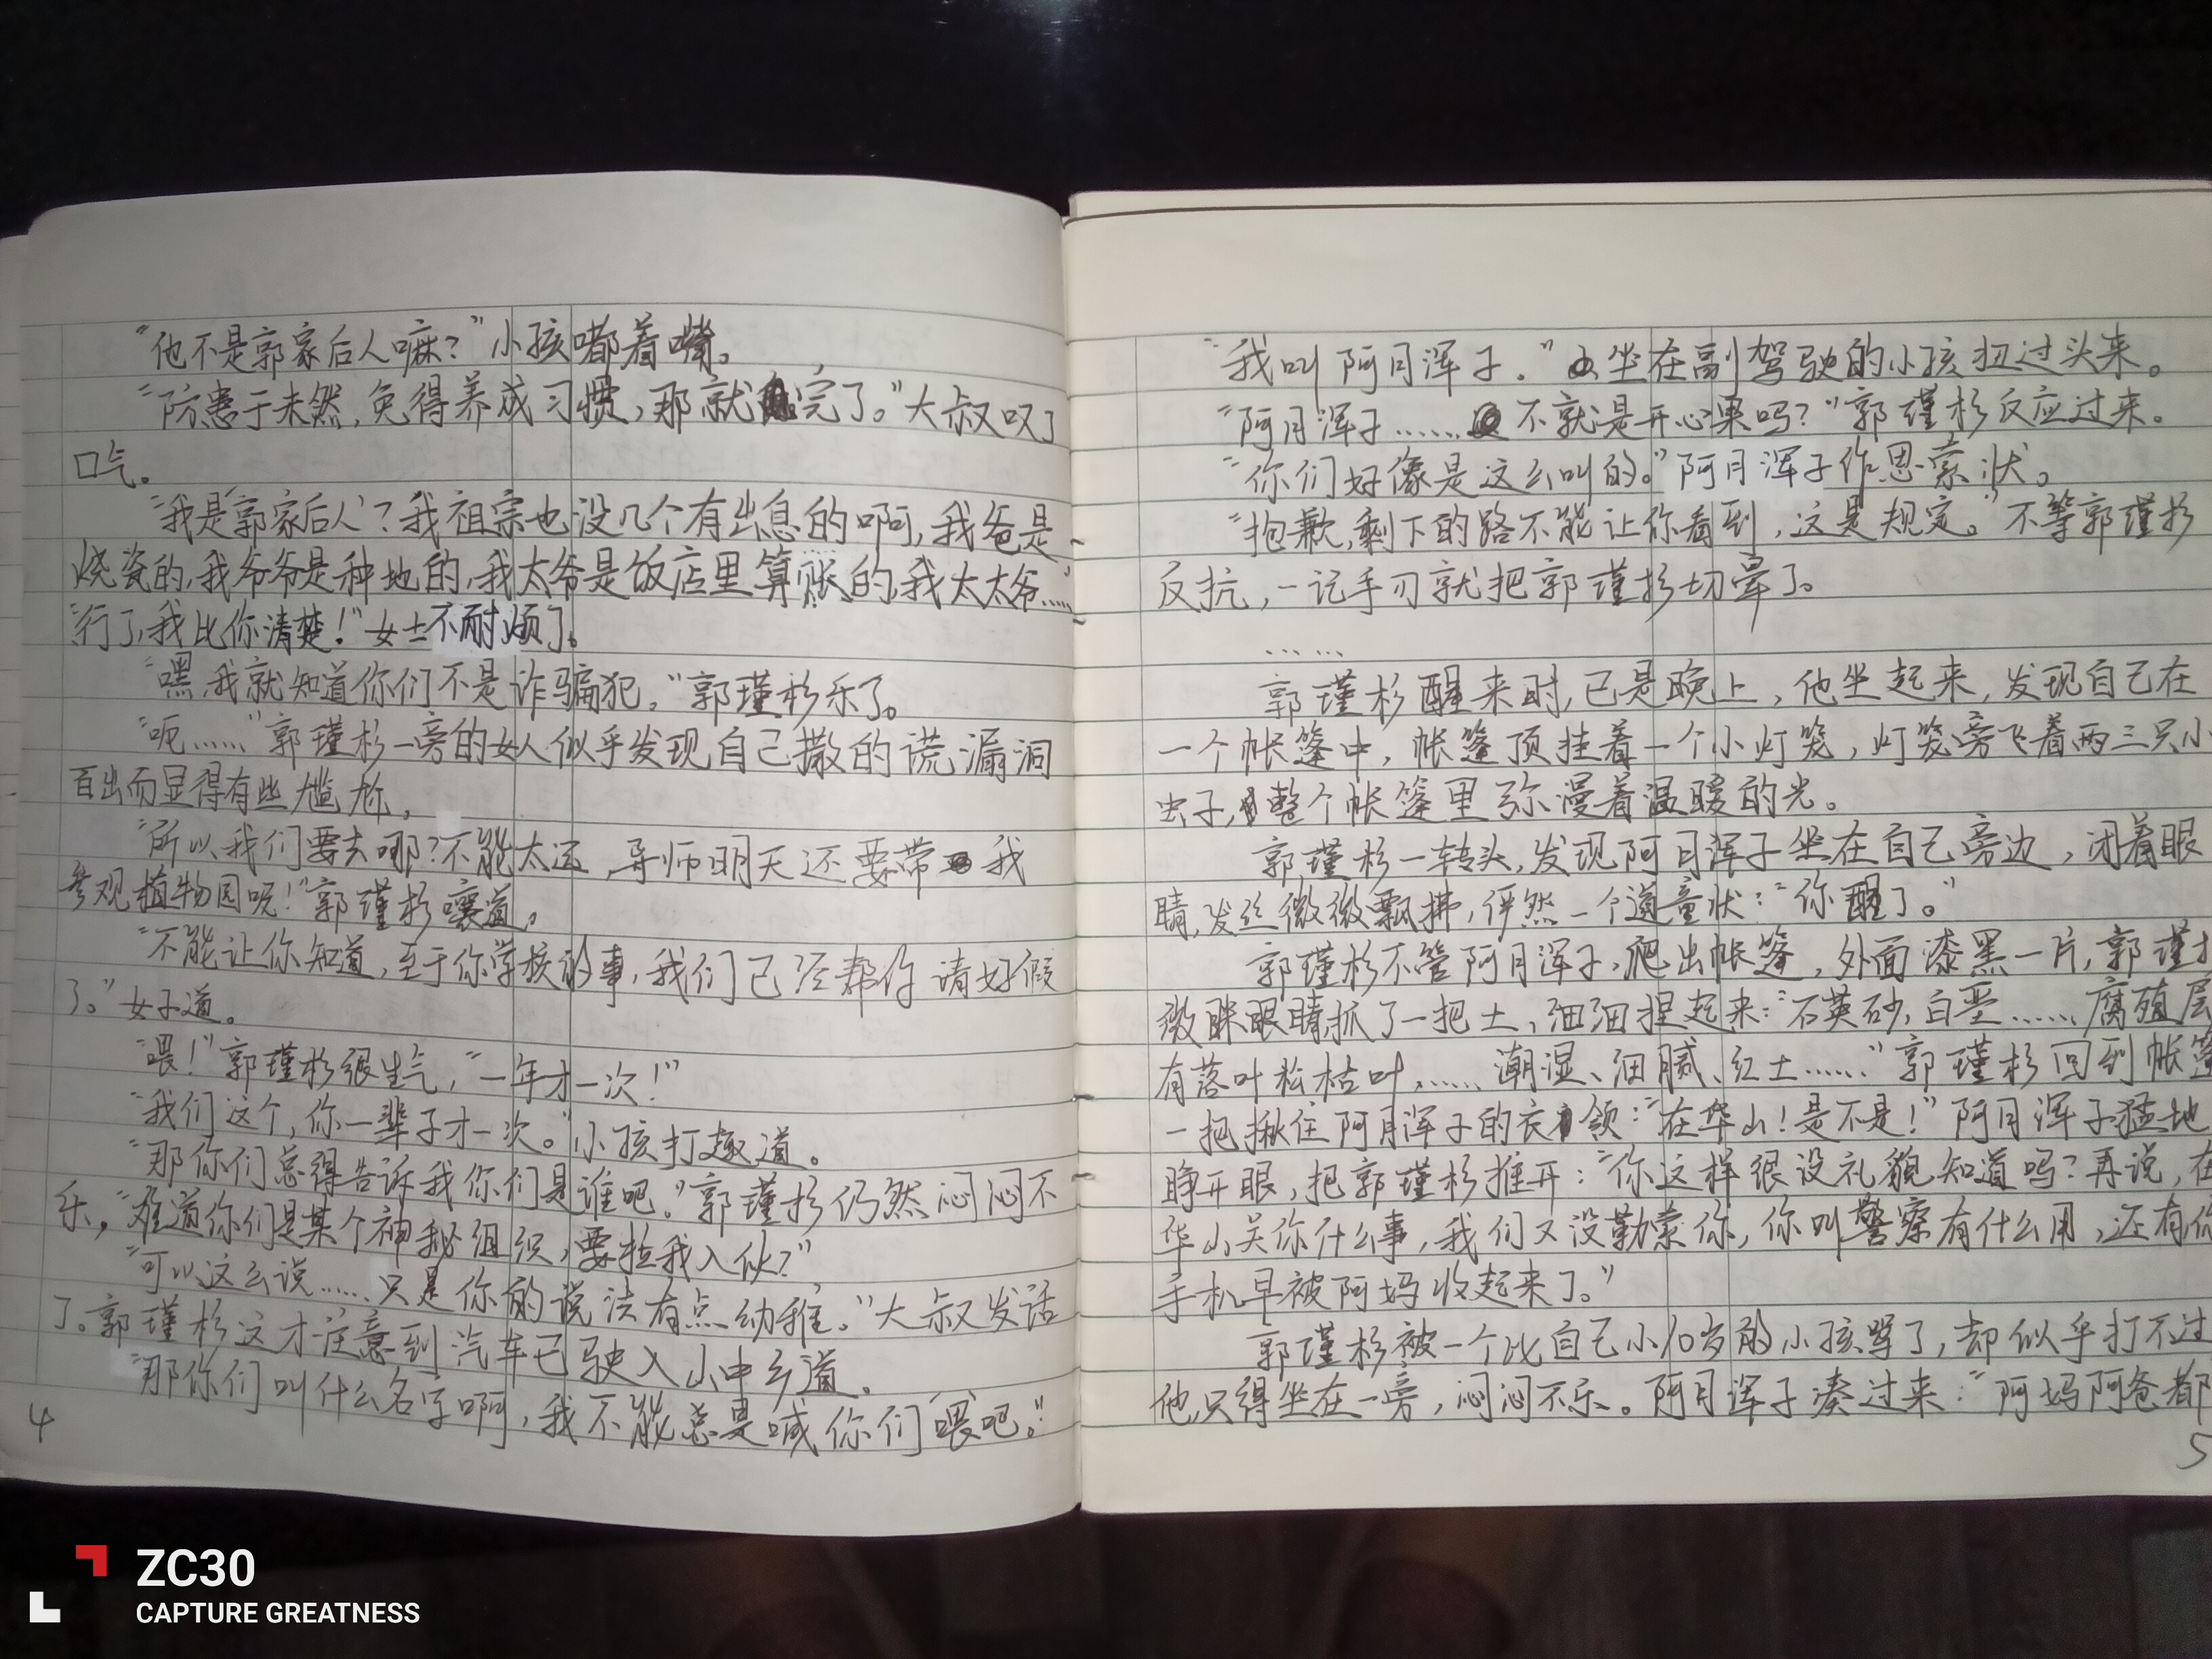 “他不是郭家后人嘛？”小孩嘟着嘴。
“防患于未然，免得养成习惯，那就完了。”大叔叹了
口气。
“我是‘郭家后人’？我祖宗也没几个有出息的啊，我爸是
烧瓷的，我爷爷是种地的，我太爷是饭店里算账的，我太太爷……”
“行了，我比你清楚！”女士不耐烦了。
“嘿，我就知道你们不是诈骗犯，”郭瑾杉乐了。
“呃……”郭瑾杉一旁的女人似乎发现自己撒的谎漏洞
百出而显得有些尴尬，
“所以我们要去哪？不能太远，导师明天还要带我
参观植物园呢！”郭瑾杉嚷道。
“不能让你知道，至于你学校的事，我们已经帮你请好假
了。”女子道。
“喂！”郭瑾杉很生气，“一年才一次！”
“我们这个，你一辈子才一次。”小孩打趣道。
“那你们总得告诉我你们是谁吧。”郭瑾杉仍然闷闷不
乐，“难道你们是某个神秘组织，要拉我入伙？”
“可以这么说……只是你的说法有点幼稚。”大叔发话
了。郭瑾杉这才注意到汽车已驶入山中乡道。
“那你们叫什么名字啊，我不能总是喊你们‘喂’吧。”
4
“我叫阿月浑子。”坐在副驾驶的小孩扭过头来。
“阿月浑子……不就是开心果吗？”郭瑾杉反应过来。
“你们好像是这么叫的。”阿月浑子作思索状。
“抱歉，剩下的路不能让你看到，这是规定。”不等郭瑾杉
反抗，一记手刃就把郭瑾杉切晕了。
……
郭瑾杉醒来时，已是晚上，他坐起来，发现自己在
一个帐篷中，帐篷顶挂着一个小灯笼，灯笼旁飞着两三只小
虫子，整个帐篷里弥漫着温暖的光。
郭瑾杉一转头，发现阿月浑子坐在自己旁边，闭着眼
睛，发丝微微飘拂，俨然一个道童状：“你醒了。”
郭瑾杉不管阿月浑子，爬出帐篷，外面漆黑一片，郭瑾杉
微眯眼睛抓了一把土，细细捏起来：“石英砂，白垩……腐殖层
有落叶松枯叶，……潮湿、细腻、红土……”郭瑾杉回到帐篷
一把揪住阿月浑子的衣领：“在华山！是不是！”阿月浑子猛地
睁开眼，把郭瑾杉推开：“你这样很没礼貌知道吗？再说，在
华山关你什么事，我们又没勒索你，你叫警察有什么用，还有你
手机早被阿妈收起来了。”
郭瑾杉被一个比自己小10岁的小孩骂了，却似乎打不过
他，只得坐在一旁，闷闷不乐。阿月浑子凑过来：“阿妈阿爸都
5
ZC30
CAPTURE GREATNESS